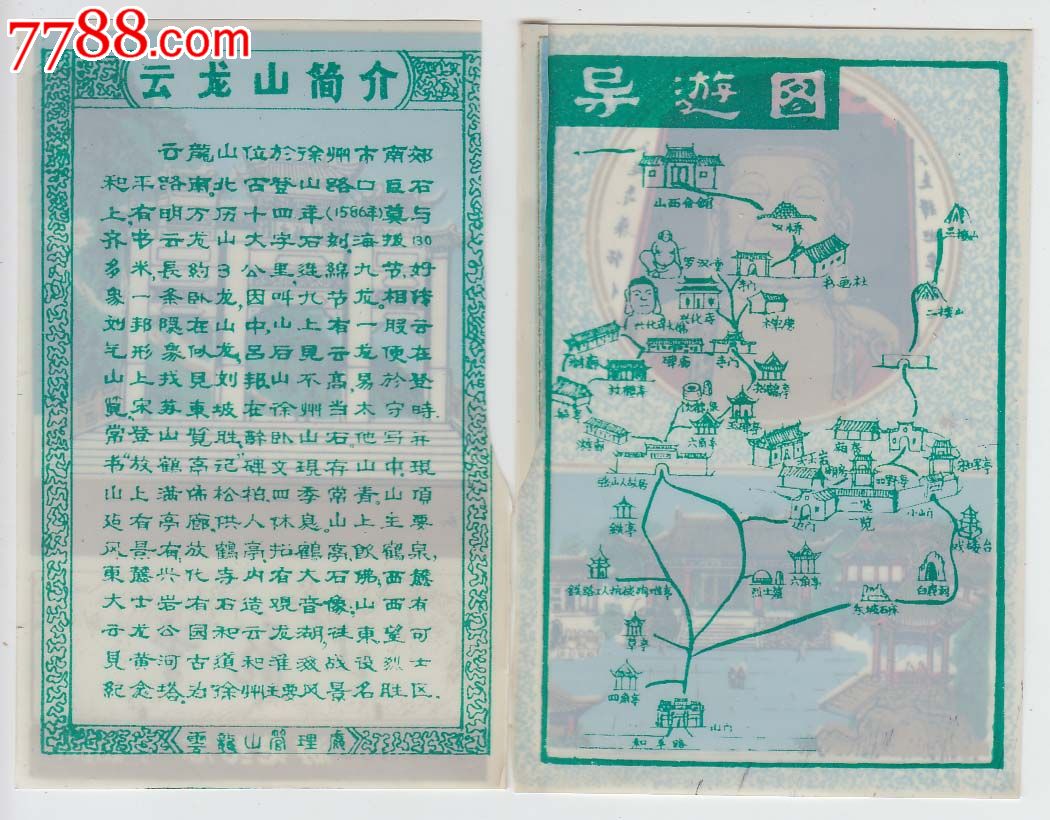 7788.com
中国收藏热线
云龙山简介
云龍山位於徐州市南郊
和平路南。北古登山路口巨石
上，有明万历十四年（1586年）莫与
齐书云龙山大字石刻，海拔130
多米，長約3公里，连綿九节，好
象一条卧龙，因叫九节龙。相传
刘邦隱在山中，山上有一股云
气形象似龙，吕后見云龙便在
山上找見刘邦。山不高，易於登
覽，宋苏東坡在徐州当太守时，
常登山覽胜，醉卧山石。他写并
书"放鶴亭記"碑文現存山中。現
山上满佈松柏四季常青，山頂
延有亭廊，供人休息。山上主要
风景有放鶴亭，招鶴亭，飲鶴泉，
東麓兴化寺内有大石佛，西麓
大士岩有石造观音像，山西有
云龙公园和云龙湖，往東望可
見黄河古道和淮海战役烈士
紀念塔。为徐州主要风景名胜区。
雲龍山管理處
导遊图
山西會館
罗汉堂
书画社
三接山
二接山
兴化寺
兴化寺大佛
禅房
寺门
碑廊
寺门
放鶴亭
饮鹤泉
六角亭
张山人故居
铁亭
大士岩
一览
小山门
戏楼台
六角亭
烈士墓
白鹿洞
东坡石床
草亭
四角亭
山门
和平路